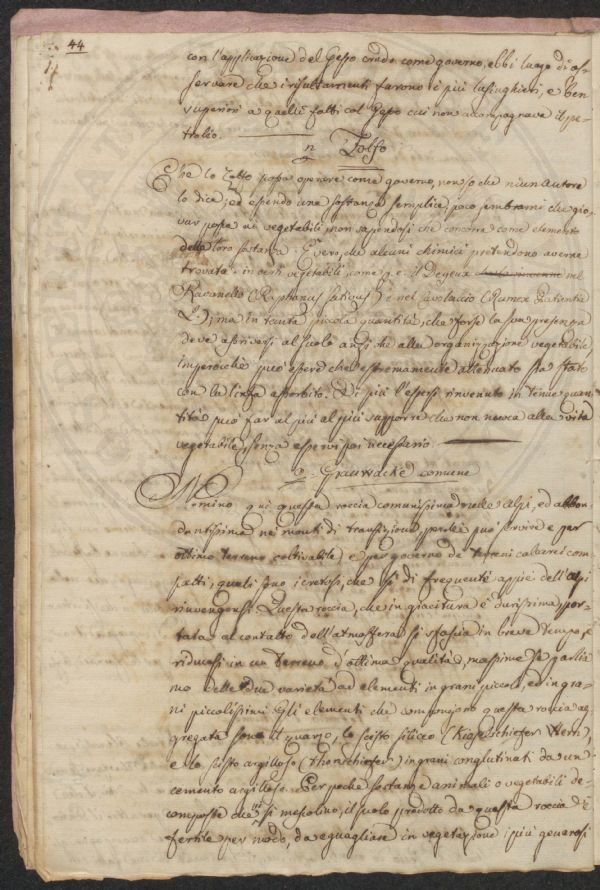 44
con l'applicazione del Gesso crudo come governo, ebbi luogo di os-
servare che i risultamenti furono i più lusinghieri, e ben
superiori a quelli fatti col Gesso cui non accompagnava il pe-
trolio.
n Zolfo
Che lo Zolfo possa operare come governo, non so che niun autore
lo dica; ed essendo una sostanza semplice, poco sembrami che gio-
var possa ai vegetabili, non sapendosi che concorra come elemento
della loro sostanza. È vero, che alcuni chimici pretendono averne
trovato in certi vegetabili, come p. e. il Deyeux nel
Ravanello (Raphanus sativus) e nel Lavolaccio (Rumex Patientia
L.); ma in tanta piccola quantità, che forse la sua presenza
deve ascriversi al suolo anzi che alla organizzazione vegetabile,
imperocchè può essere che estremamente attenuato sia stato
con la linfa assorbito. Di più l'essersi rinvenuto in tenue quan-
tità può far al più al più supporre che non nuoca alla vita
vegetabile, senza esservi poi necessario.
o. Grauwacke comune
Nomino qui questa roccia comunissima nelle alpi, ed abbon-
dantissima nei monti di transizione, perchè può servire e per
ottimo terreno coltivabile, e per governo de' terreni calcarei com-
patti, quali sono i cretosi, che sì di frequente appiè dell'alpi
rinvengonsi. Questa roccia, che in giacitura è durissima, por-
tata al contatto dell'atmosfera si sfascia in breve tempo, e
riducesi in un terreno d'ottima qualità, massime se parlia-
mo delle due varietà ad elementi in grani piccoli, ed in gra-
ni piccolissimi. Gli elementi che compongono questa roccia ag-
gregata sono il quarzo, lo scisto siliceo (Kieselschiefer Wern.)
e lo scisto argilloso (Thonschiefer) in grani conglutinati da un
cemento argilloso. Per poche sostanze animali o vegetabili de-
composte che vi si mescolino, il suolo prodotto da questa roccia è
fertile per modo, da eguagliare in vegetazione i più generosi